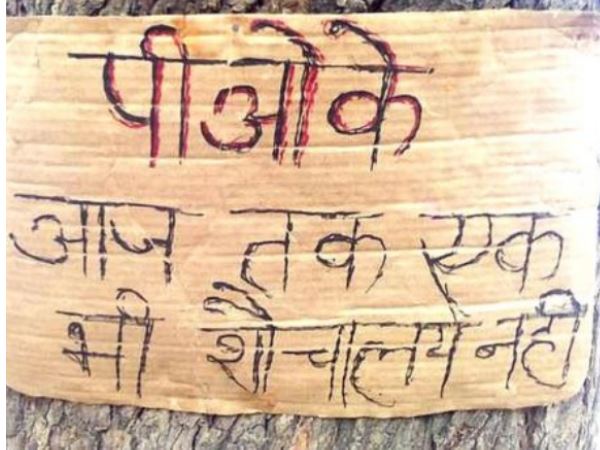 पीओके
आज तक एक
भी शौचालय नही